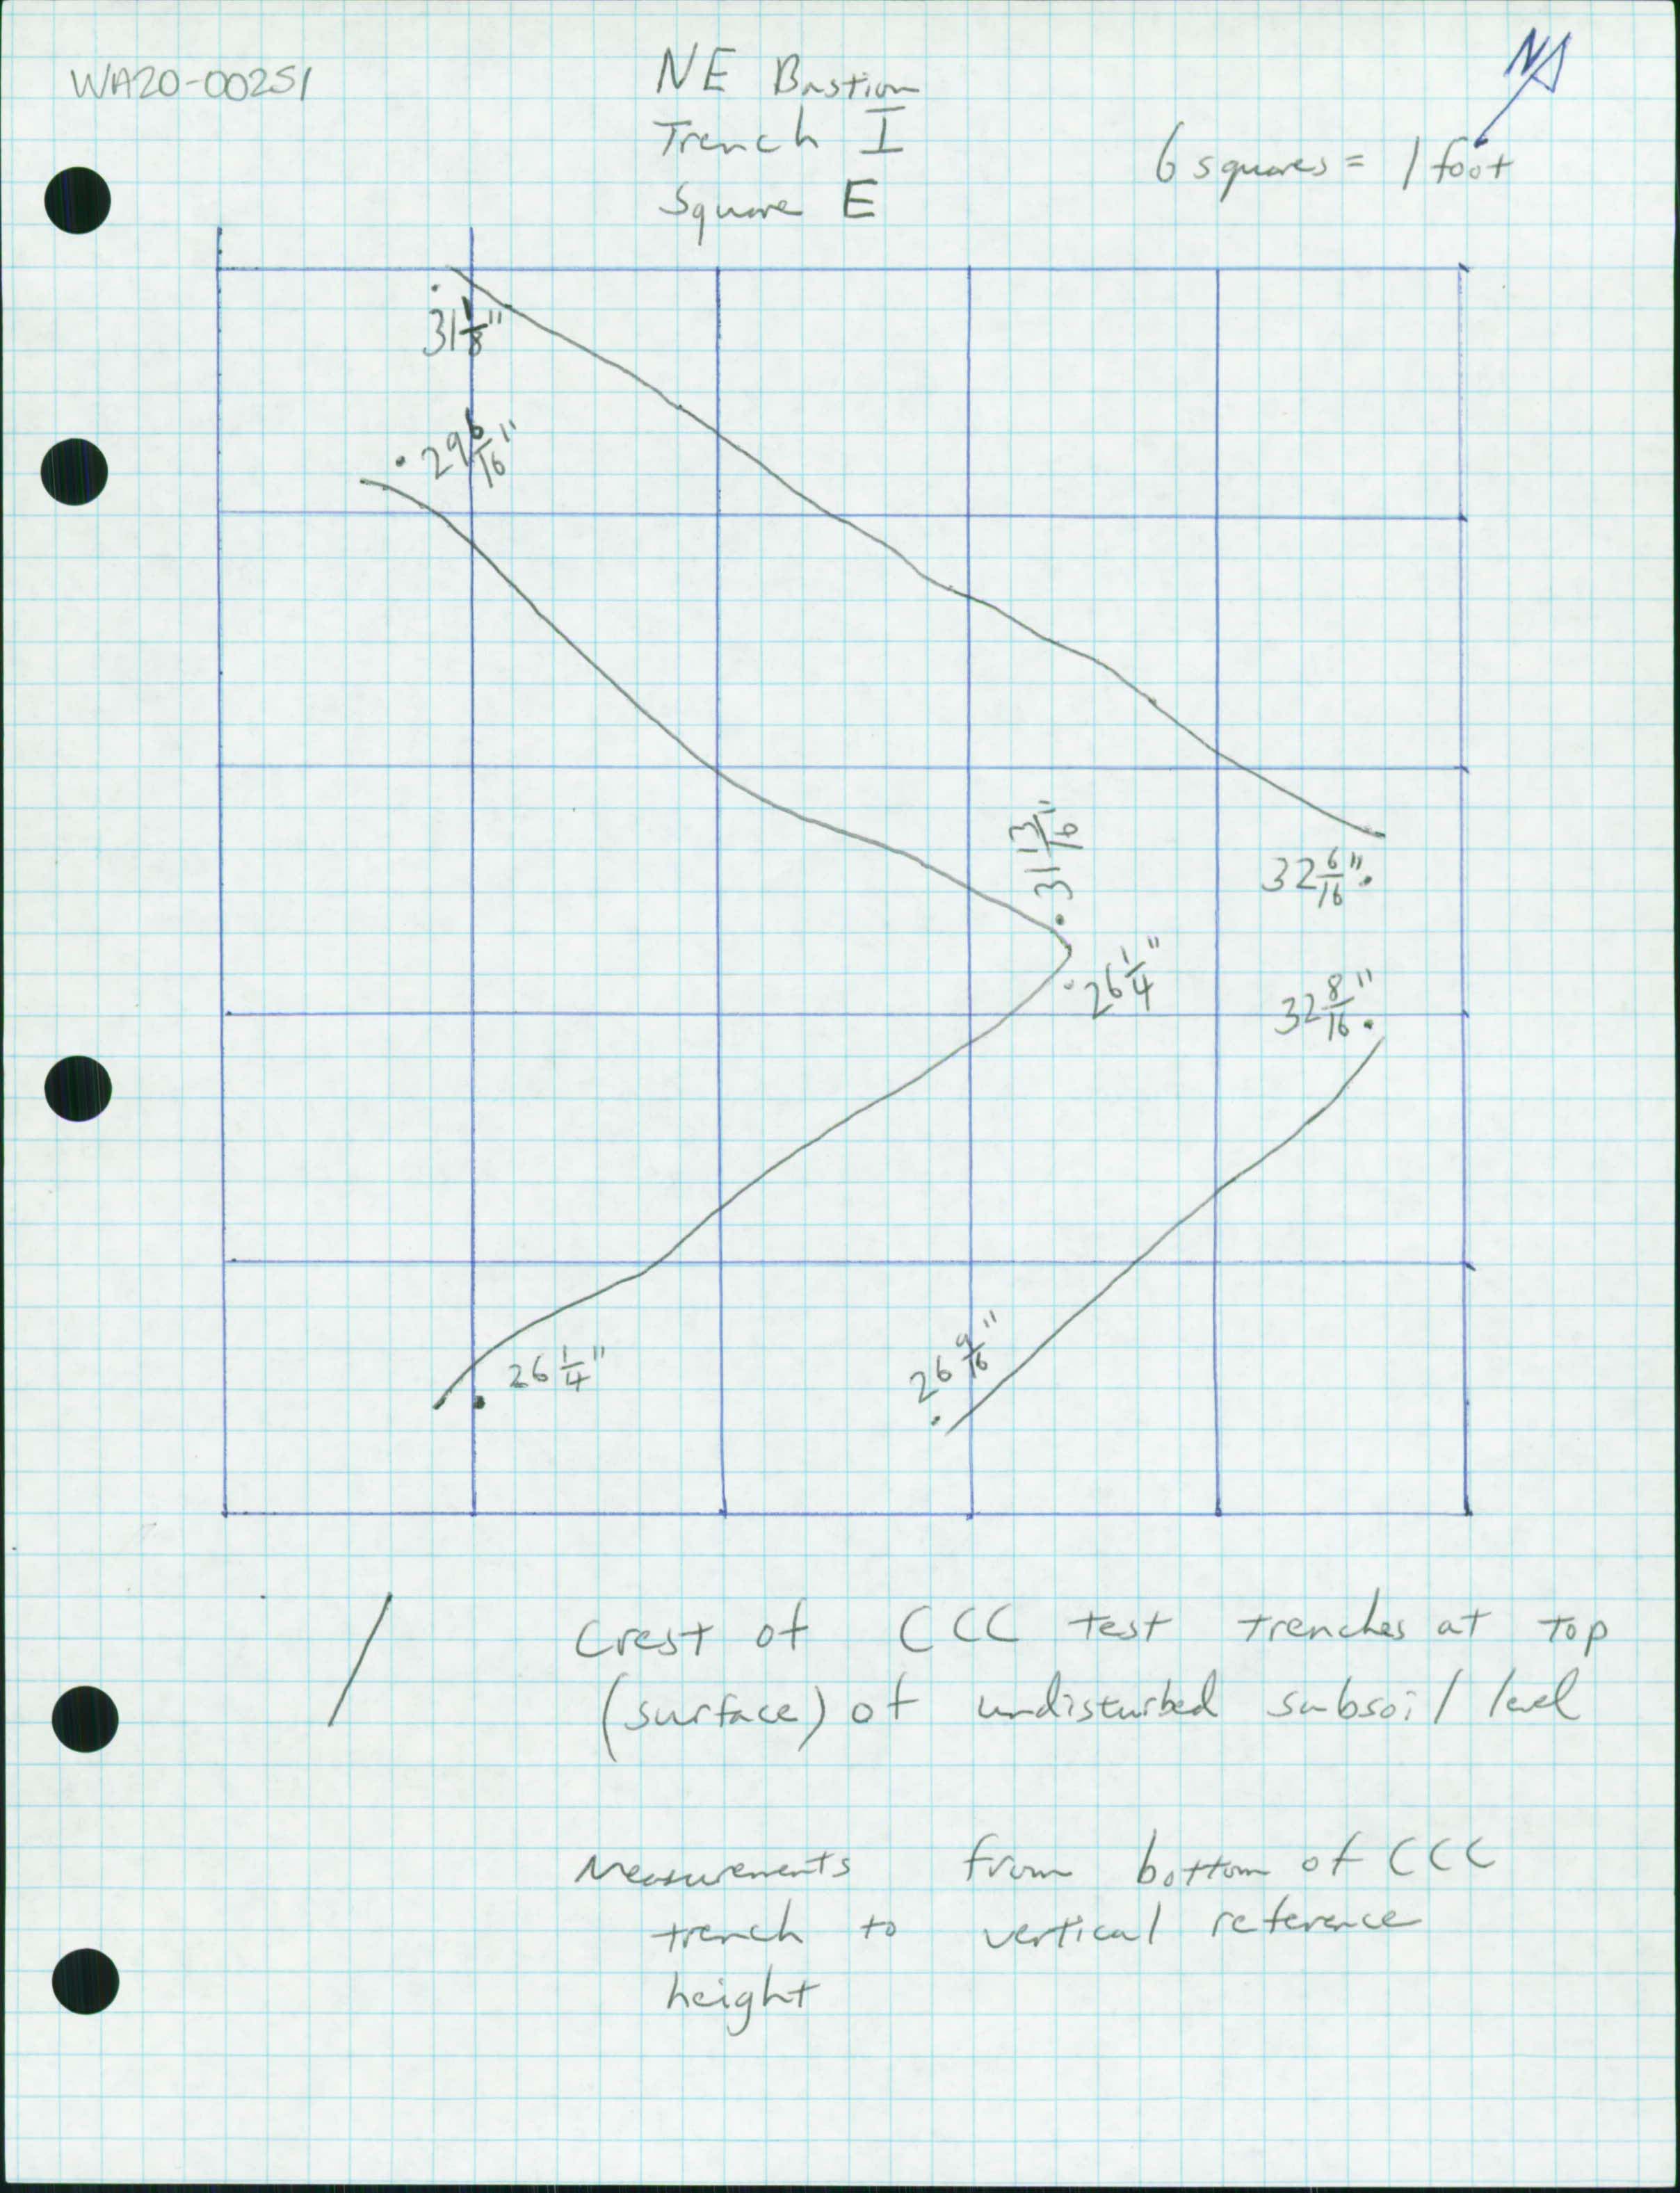 WA20-00251
NE Bastion
Trench I
Square E
N
6 squares = 1 foot
31 1/8"
29 6/16"
31 13/16"
32 6/16"
26 1/4"
32 8/16"
26 1/4"
26 9/16"
Crest of CCC test trenches at top
(surface) of undisturbed subsoil level
Measurements from bottom of CCC
trench to vertical reference
height